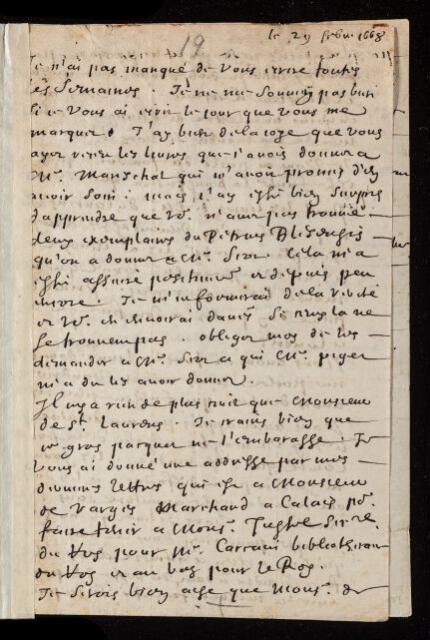 19
le 29 febvr 1668
Je n'ai pas manqué de vous ecrire toutes
les semaines. Je ne me souviens pas bien
si je vous ai ecrit le jour que vous me
marquez. J'ay bien de la joye que vous
ayez receu les livres que j'avois donnez a
Mr. Mareschal qui m'avoit promis d'en
avoir soin: mais j'ay esté bien surpris
d'apprendre que vous n'avez pas trouvé
deux exemplaires du Petrus Blesensis
qu'on a donné a Mr. Cela m'a
esté asseuré positivement et depuis peu
encore. Je m'informerai de la verité
et
se trouvent pas. obligez moy de les
demander a Mr. a qui Mr.
m'a dit les avoir donnez.
Il n'y a rien de plus que Monsieur
de St. Laurens. Je crains bien que
ce gros pacquet ne l'embarasse. Je
vous ai donné une addresse par mes
dernieres lettres qui est a Monsieur
de Marchand a Calais pr.
faire tenir a Mons.
du Roy pour Mr. Carcavi bibliothecaire
du Roy et au bas pour le Roy.
Je serois bien aise que Mons. de